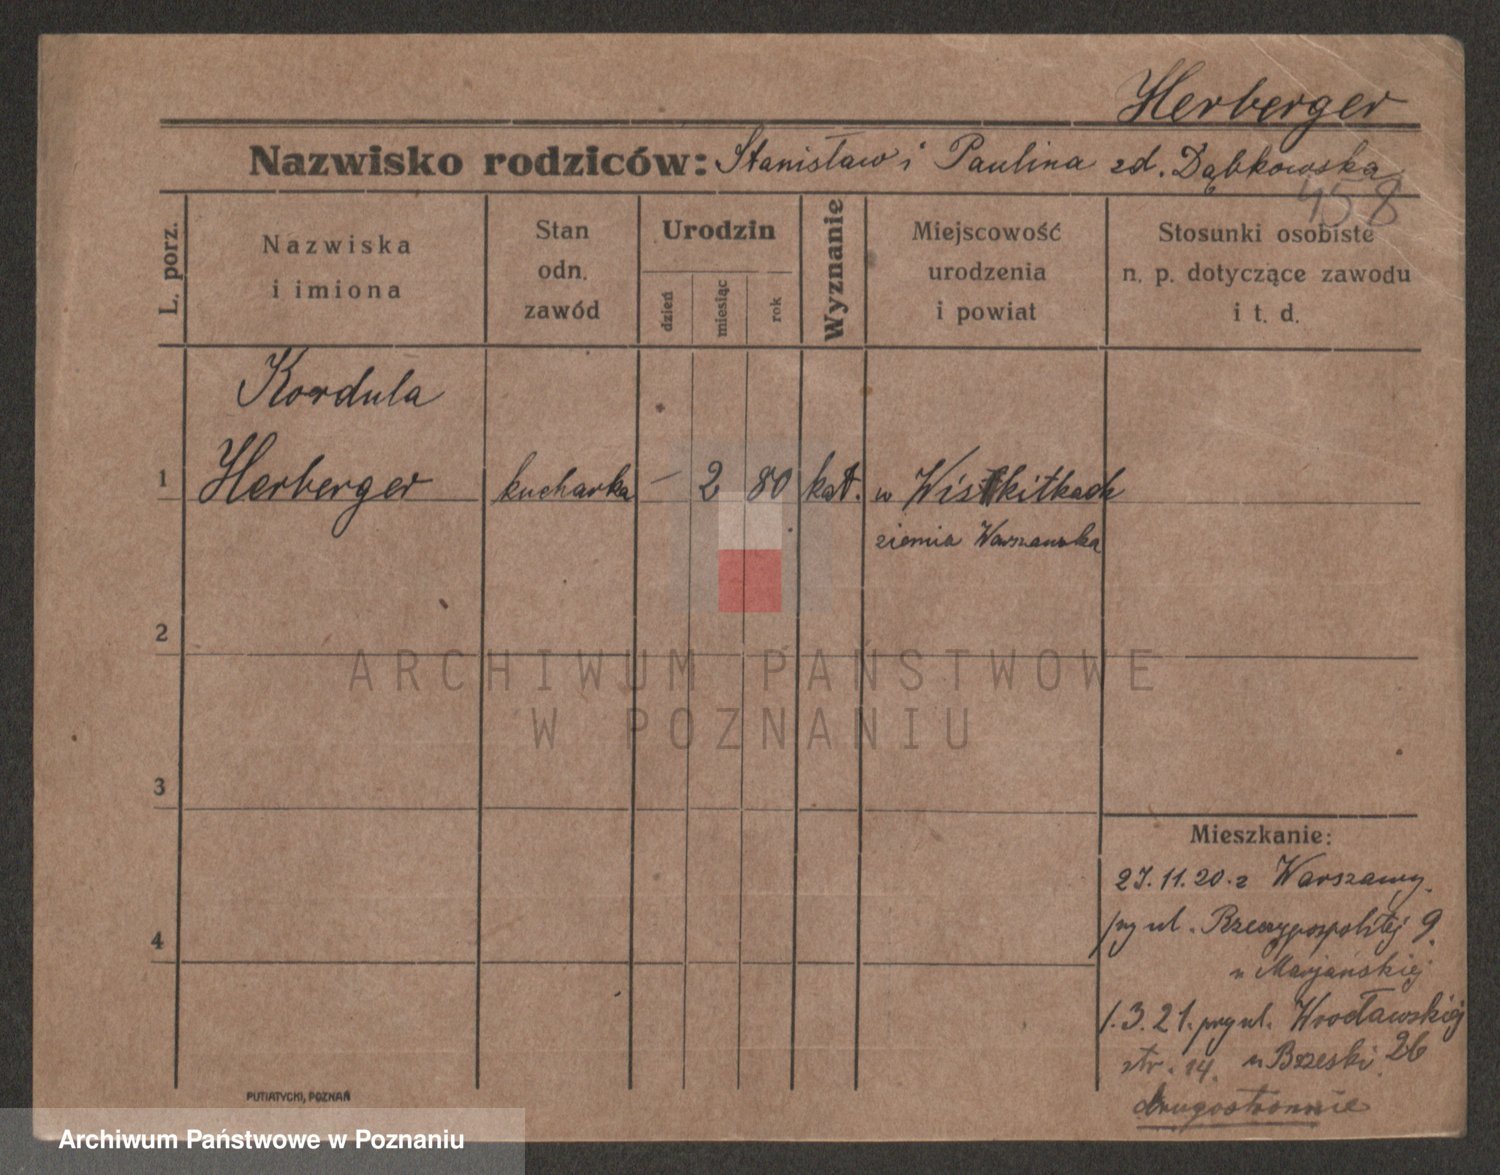 Herberger
Nazwisko rodziców: Stanisław i Paulina zd. Dąbkowska
458
L. porz.
Nazwiska
i imiona
Stan
odn.
zawód
Urodzin
dzień
miesiąc
rok
Wyznanie
Miejscowość
urodzenia
i powiat
Stosunki osobiste
n. p. dotyczące zawodu
i t. d.
Kordula
1 Herberger kucharka — 2 80 kat. w Wiskitkach
ziemia Warszawska
2
3
4
Mieszkanie:
27.11.20. z Warszawy.
przy ul. Rzeczypospolitej 9.
u Marjańskiej
1.3.21. przy ul. Wrocławskiej 26
str. 14. u Brzeski
drugostronnie
PUTIATYCKI, POZNAŃ
ARCHIWUM PAŃSTWOWE
W POZNANIU
Archiwum Państwowe w Poznaniu